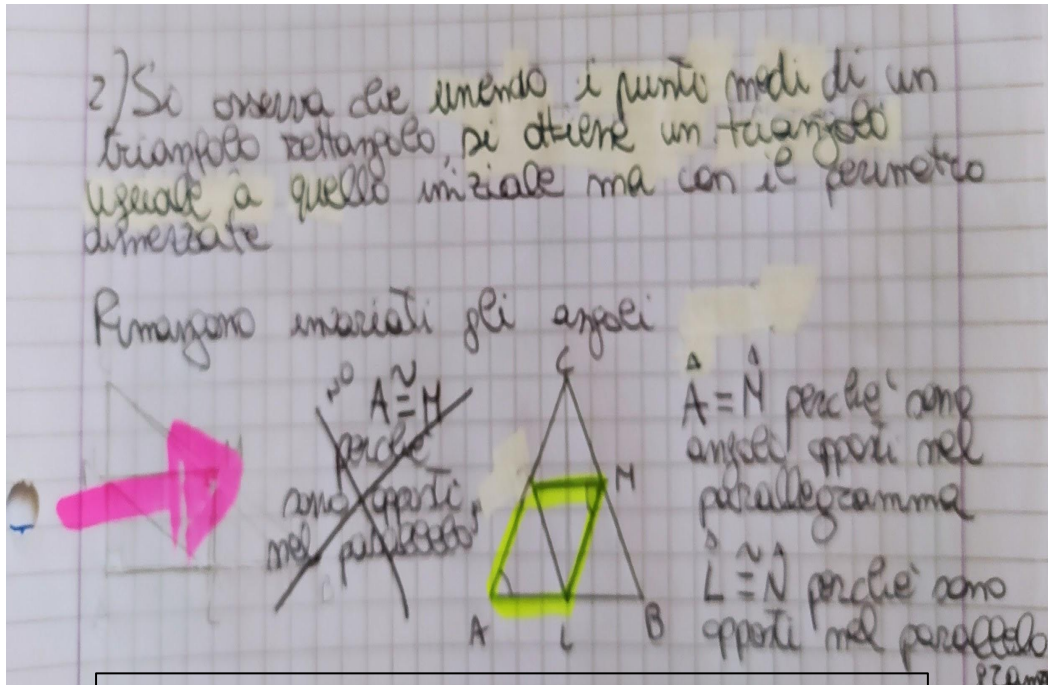 2) Si osserva che unendo i punti medi di un
triangolo rettangolo, si ottiene un triangolo
uguale a quello iniziale ma con il perimetro
dimezzato
Rimangono invariati gli angoli
NO A ≅ M
perché
sono opposti
nel
C
M
A
L
B
Â = M̂ perche' sono
angoli opposti nel
parallelogramma
L̂ ≅ N̂ perche' sono
opposti nel parallelo
gramm